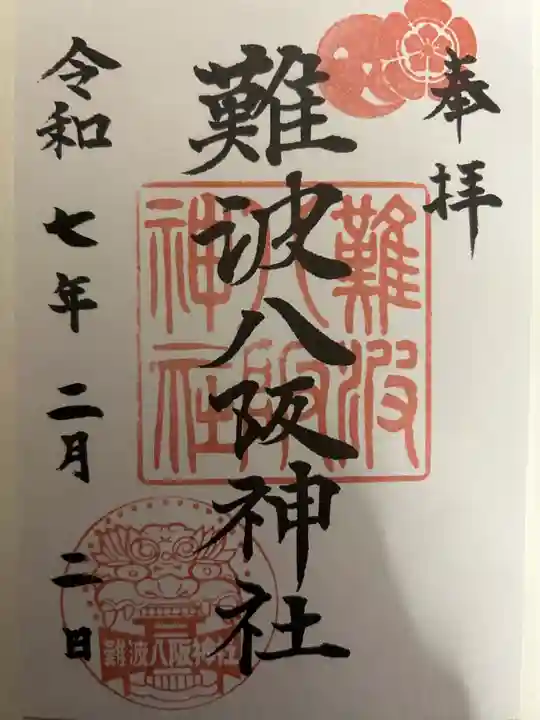 奉拝
難波八阪神社
難波
八阪
神社
令和七年二月二日
難波八阪神社